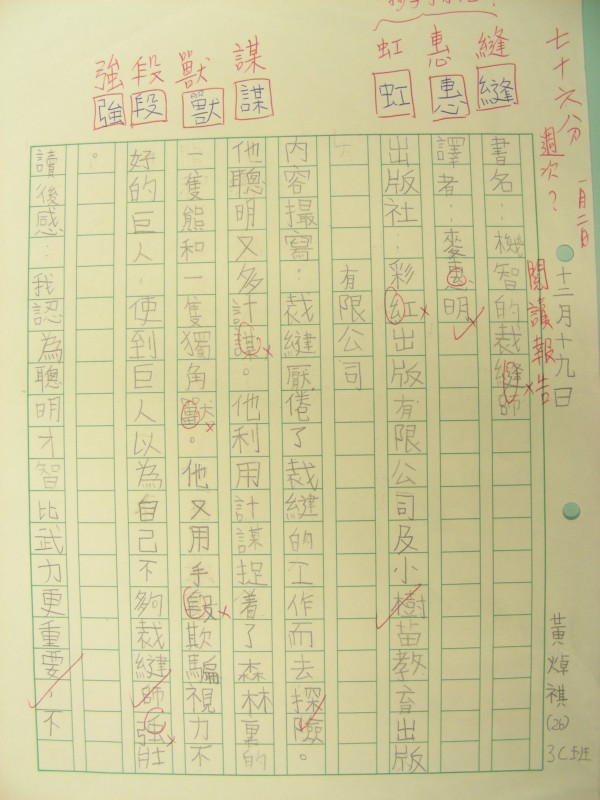 七十六分
一月二日
週次?
十二月十九日
閱讀報告
黃焯祺(26)
3C班
縫縫
惠惠
虹虹
謀謀
獸獸
段段
強強
書名:機智的裁縫師
譯者:麥惠明
出版社:彩紅出版有限公司及小樹苗教育出版
有限公司
內容撮寫:裁縫厭倦了裁縫的工作而去探險。
他聰明又多計謀。他利用計謀捉着了森林裏的
一隻熊和一隻獨角獸。他又用手段欺騙視力不
好的巨人,使到巨人以為自己不夠裁縫師強壯
。
讀後感:我認為聰明才智比武力更重要,不